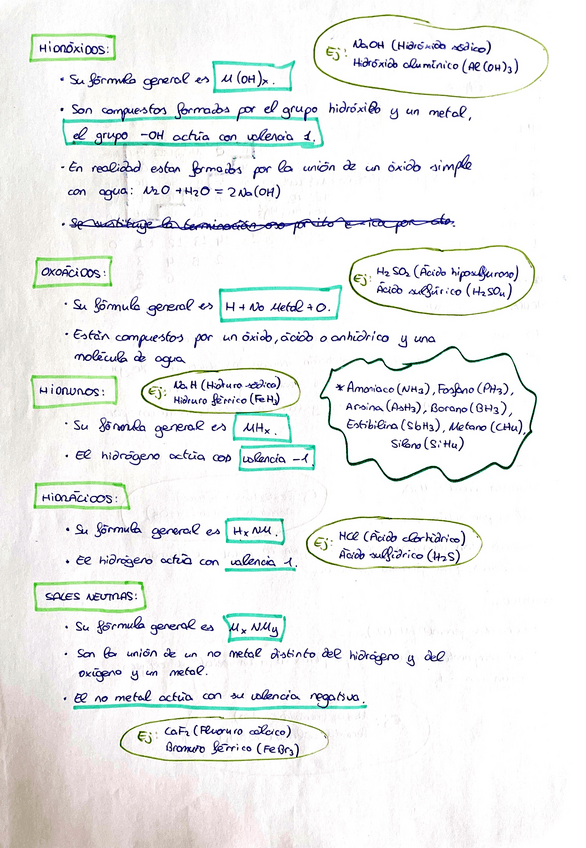 HIDRÓXIDOS:
Ej: NaOH (Hidróxido sódico)
Hidróxido alumínico (Al(OH)3)
· Su fórmula general es M(OH)x.
· Son compuestos formados por el grupo hidróxilo y un metal,
el grupo -OH actúa con valencia 1.
· En realidad estan formados por la unión de un óxido simple
con agua: N2O + H2O = 2Na(OH)
· Se sustituye la terminación oso por ito e ico por ato.
OXOÁCIDOS:
Ej: H2SO2 (Ácido hiposulfuroso)
Ácido sulfúrico (H2SO4)
· Su fórmula general es H + No Metal + O.
· Están compuestos por un óxido, ácido o anhídrico y una
molécula de agua
HIDRUROS:
Ej: NaH (Hidruro sódico)
Hidruro férrico (FeH3)
* Amoniaco (NH3), Fosfano (PH3),
Arsina (AsH3), Borano (BH3),
Estibilina (SbH3), Metano (CH4),
Silano (SiH4)
· Su fórmula general es MHx.
· El hidrógeno actúa con valencia -1.
HIDRÁCIDOS:
· Su fórmula general es HxNM.
· El hidrógeno actúa con valencia 1.
Ej: HCl (Ácido clorhídrico)
Ácido sulfídrico (H2S)
SALES NEUTRAS:
· Su fórmula general es MxNMy
· Son la unión de un no metal distinto del hidrógeno y del
oxígeno y un metal.
· El no metal actúa con su valencia negativa.
Ej: CaF2 (Fluoruro cálcico)
Bromuro férrico (FeBr3)